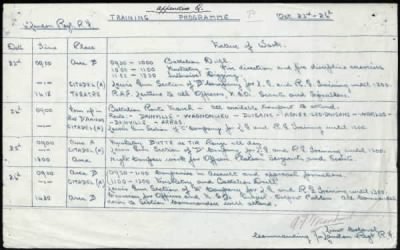 Appendix G.
London Regt R.F. TRAINING PROGRAMME Oct 23rd-26th
Date Time Place Nature of Work.
23rd 09.00 Area B 09.00 - 10.00 Battalion Drill
10.00 - 11.00 Musketry - Fire direction and fire discipline exercises
11.00 - Intensive Digging
CITADEL (A) Lewis Gun Section of Company for L.G. and R.G. Training until 1200.
THEATRE Lecture to all Officers N.C.O. Scouts and Signallers.
24th 09.00 Battalion Route March - all available transport to attend.
Route:- DAINVILLE - WAGNONLIEU - DUISANS - AGNEZ-LES-DUISANS - WARLUS
- DAINVILLE - ARRAS
CITADEL (A) Lewis Gun Section of "C" Company for L.G. and R.G. Training until 1200.
25th 09.00 Area A Musketry BUTTS at TIR Range all day.
CITADEL (A) Lewis Gun Section of "D" Company for L.G. and R.G. Training until 1200.
1800 Area Night Compass work for Officers Platoon Sergeants and Scouts.
26th 09.00 Area D 09.00 - 1100 Companies in assault and approach formations.
CITADEL (A) 1100 - 1200 Musketry and Battalion Drill
Lewis Gun Section of "A" Company for L.G. and R.G. Training until 1200.
Area B for Officers and N.C.O.
Section Commanders will attend.
Lieut Colonel
Commanding London Regt R.F.